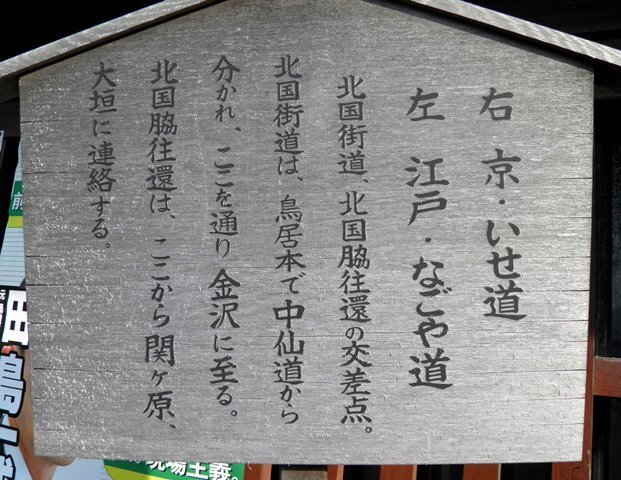 右 京・いせ道
左 江戸・なごや道
北国街道、北国脇往還の交差点。
北国街道は、鳥居本で中仙道から
分かれ、ここを通り金沢に至る。
北国脇往還は、ここから関ヶ原、
大垣に連絡する。
現場主義。